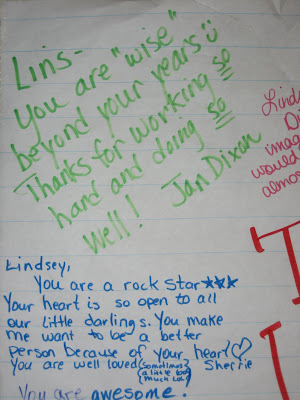 Lins-
You are "wise"
beyond your years
Thanks for working so
hard and doing so
well! Jan Dixon
Lindsey,
You are a rock star ★★★
Your heart is so open to all
our little darlings. You make
me want to be a better
person because of your heart ♡
You are well loved (Sometimes Sherrie
a little too
much lol)
You are awesome.
Linds
Di
imag
would
almos